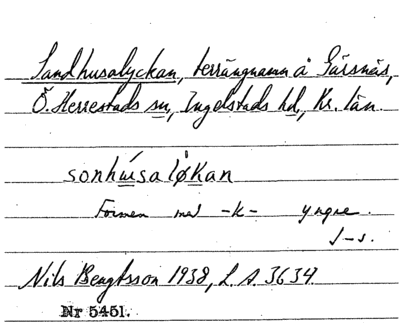 Sandhusalyckan, terrängnamn å Gärsnäs,
Ö. Herrestads sn, Ingelstads hd, Kr. län.
sonhúsa lø̊kan
Formen med -k- yngre.
J-s.
Nils Bengtsson 1938, L.A. 3634.
Nr 5451.